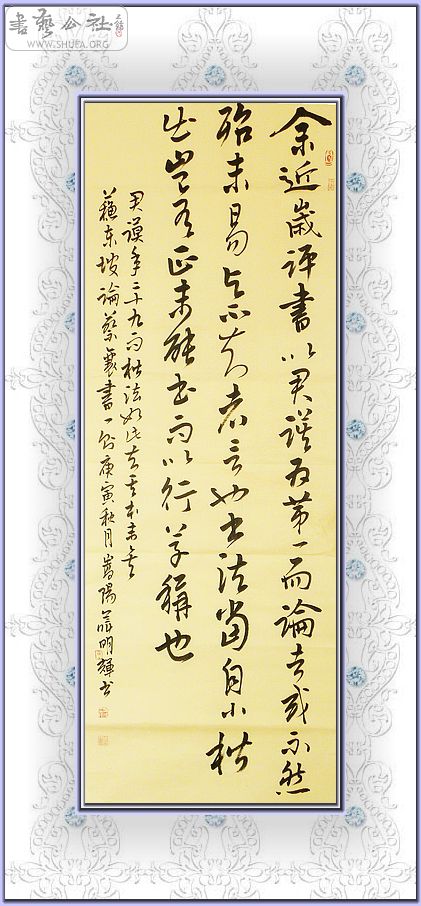 書藝公社
WWW.SHUFA.ORG
余近歲評書以君謨为第一而論者或不然
殆未易与不知者言也书法當自小楷
出岂有正未能书而以行草稱也
君謨年二十九而楷法如此知其本末矣
蘇东坡論蔡襄書一则庚寅秋月嵩陽明輝书